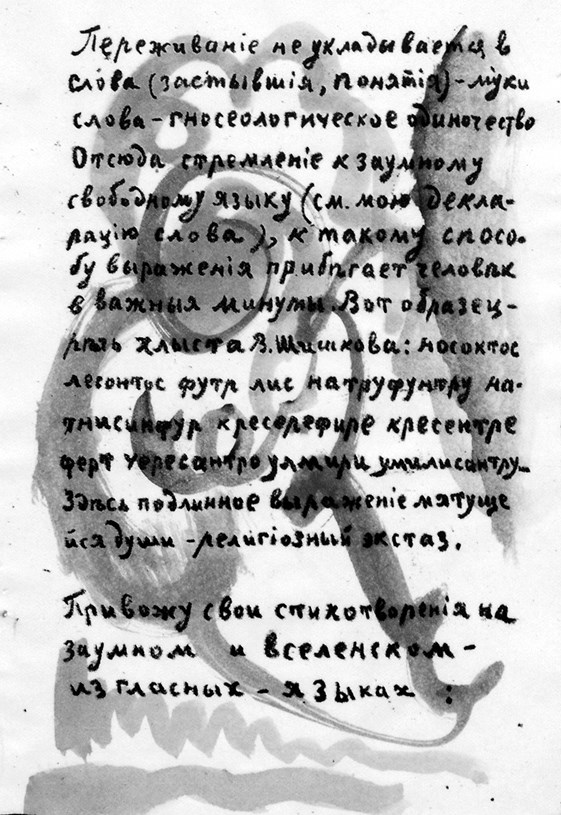 Переживаніе не укладывается в
слова (застывшія, понятія) - муки
слова - гносеологическое одиночество
Отсюда стремленіе к заумному
свободному языку (см. мою декла-
рацію слова), к такому спосо-
бу выраженія прибѣгает человѣк
в важныя минуты. Вот образец -
рѣчь хлыста В. Шишкова: носоктос
лесонтос футр лис натруфунтру на-
тнисинфур кресерефире кресентре
ферт чересантро улмири умилисантру -
Здѣсь подлинное выраженіе мятуще
йся души - религіозный экстаз.
Привожу свои стихотворенія на
заумном и вселенском -
из гласных - языках :